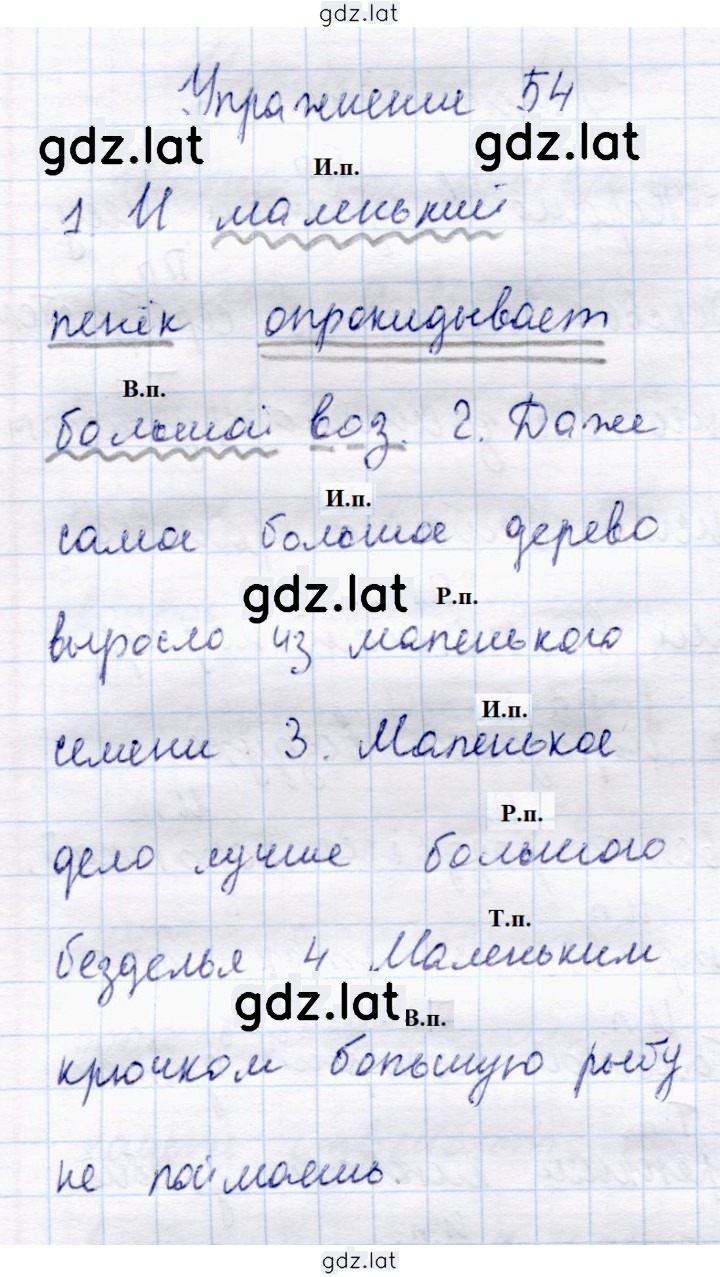 gdz.lat
Упражнение 54
gdz.lat gdz.lat
И.п.
1 И маленький
пенёк опрокидывает
В.п.
большой воз. 2. Даже
И.п.
самое большое дерево
gdz.lat Р.п.
выросло из маленького
И.п.
семени 3. Маленькое
Р.п.
дело лучше большого
Т.п.
безделья 4 Маленьким
gdz.lat В.п.
крючком большую рыбу
не поймаешь.
gdz.lat